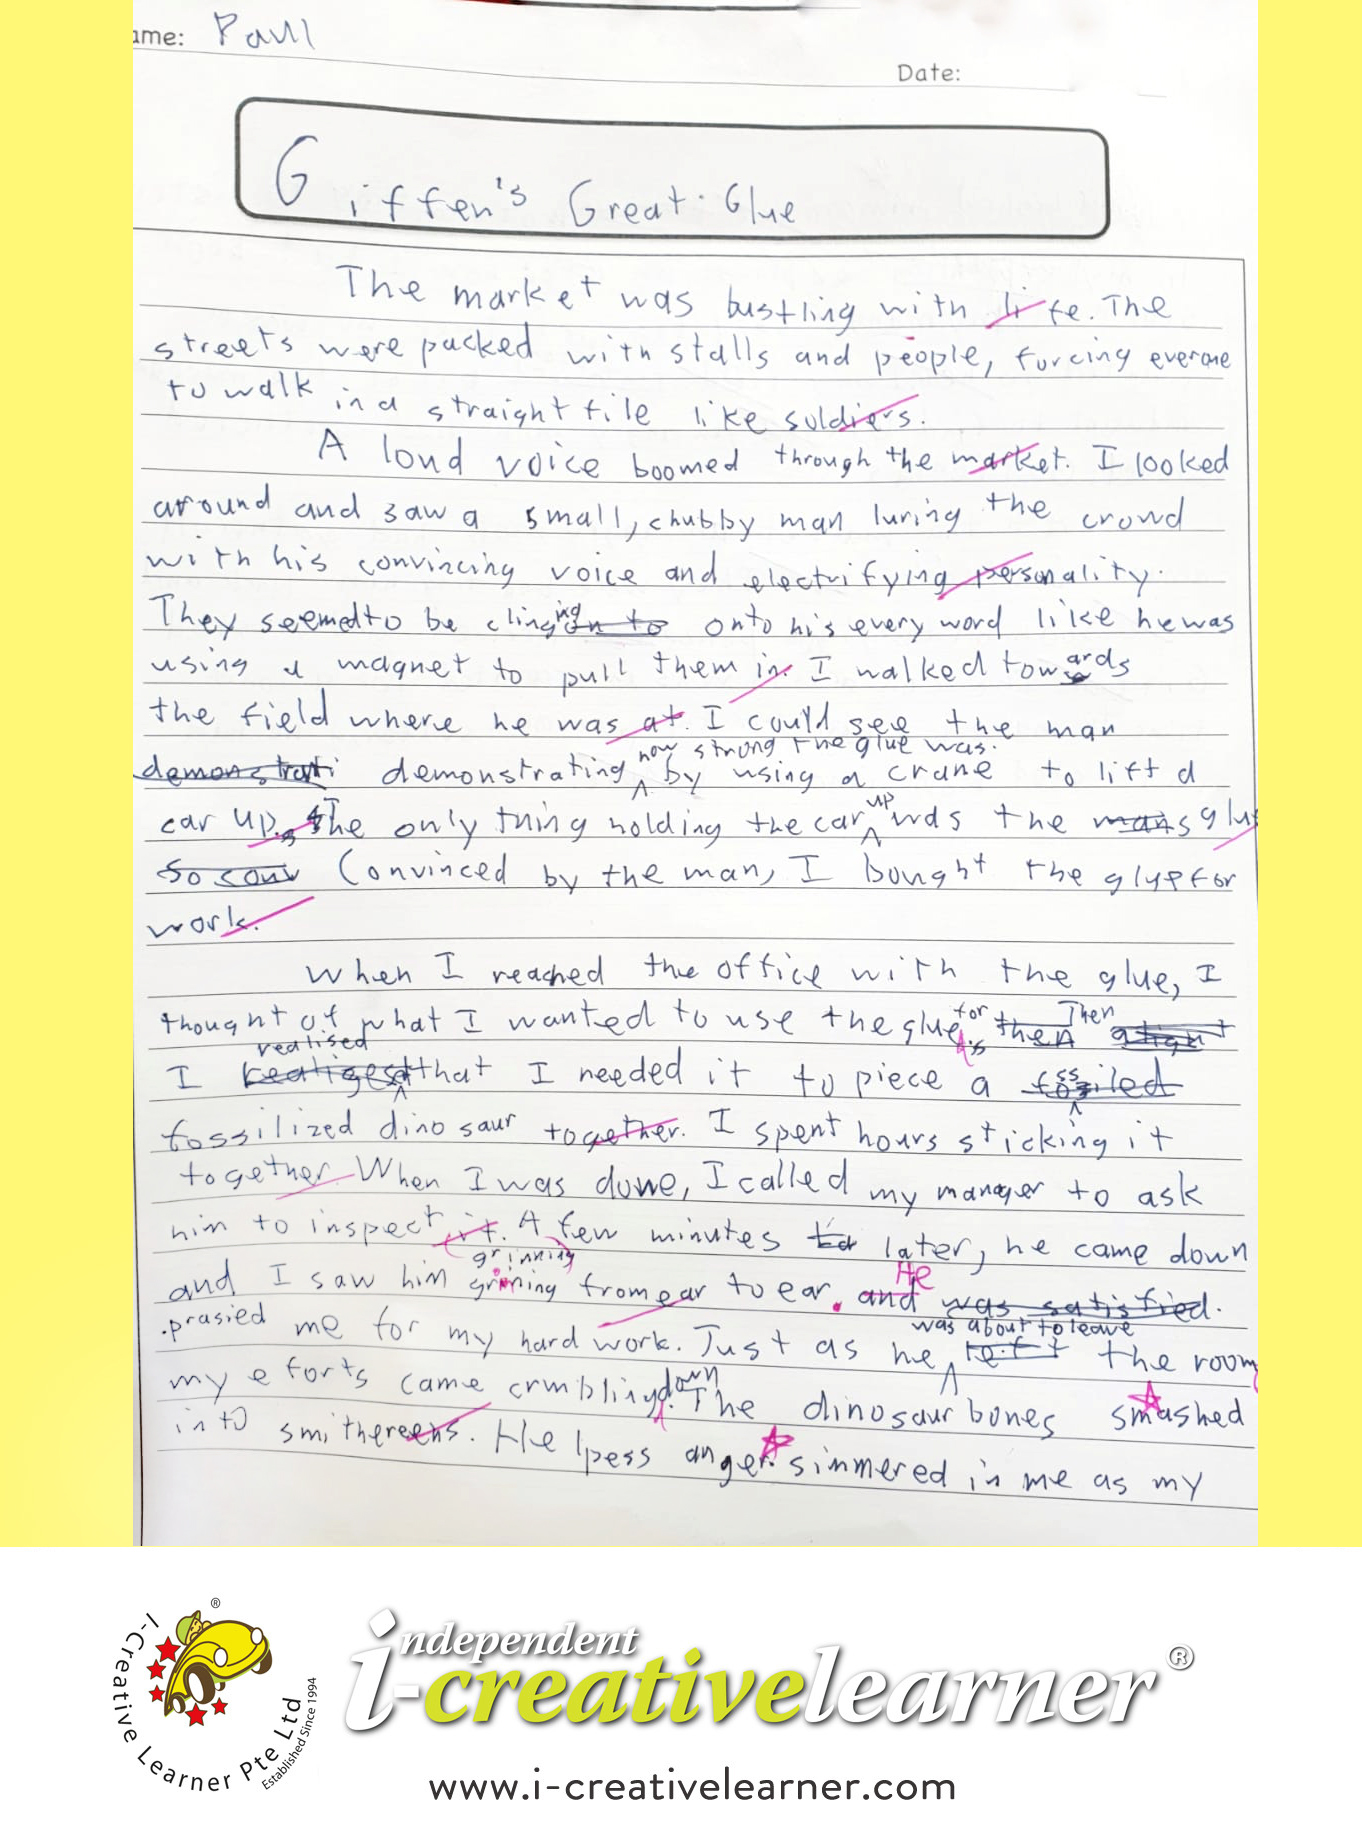 ame: Paul
Date:
Giffen's Great Glue
The market was bustling with life. The
streets were packed with stalls and people, forcing everone
to walk in a straight file like soldiers.
A loud voice boomed through the market. I looked
around and saw a small, chubby man luring the crowd
with his convincing voice and electrifying personality.
They seemed to be clinging on to onto his every word like he was
using a magnet to pull them in. I walked towards
the field where he was at. I could see the man
how strong the glue was.
demonstrati demonstrating by using a crane to lift a
car up. The only thing holding the car up was the mans glue
so Convinced by the man, I bought the glue for
work.
When I reached the office with the glue, I
thought of what I wanted to use the glue for. then Then
realised
I that I needed it to piece a fossiled
fossilized dinosaur together. I spent hours sticking it
together. When I was done, I called my manager to ask
him to inspect it. A few minutes later, he came down
grinning
and I saw him grining from ear to ear. and He was satisfied.
prasied me for my hard work. Just as he was about to leave left the room
my eforts came crmbling down. The dinosaur bones smashed
into smithereens. Helpess anger simmered in me as my
I-Creative Learner Pte Ltd
Established Since 1994
®
independent
i-creativelearner®
www.i-creativelearner.com